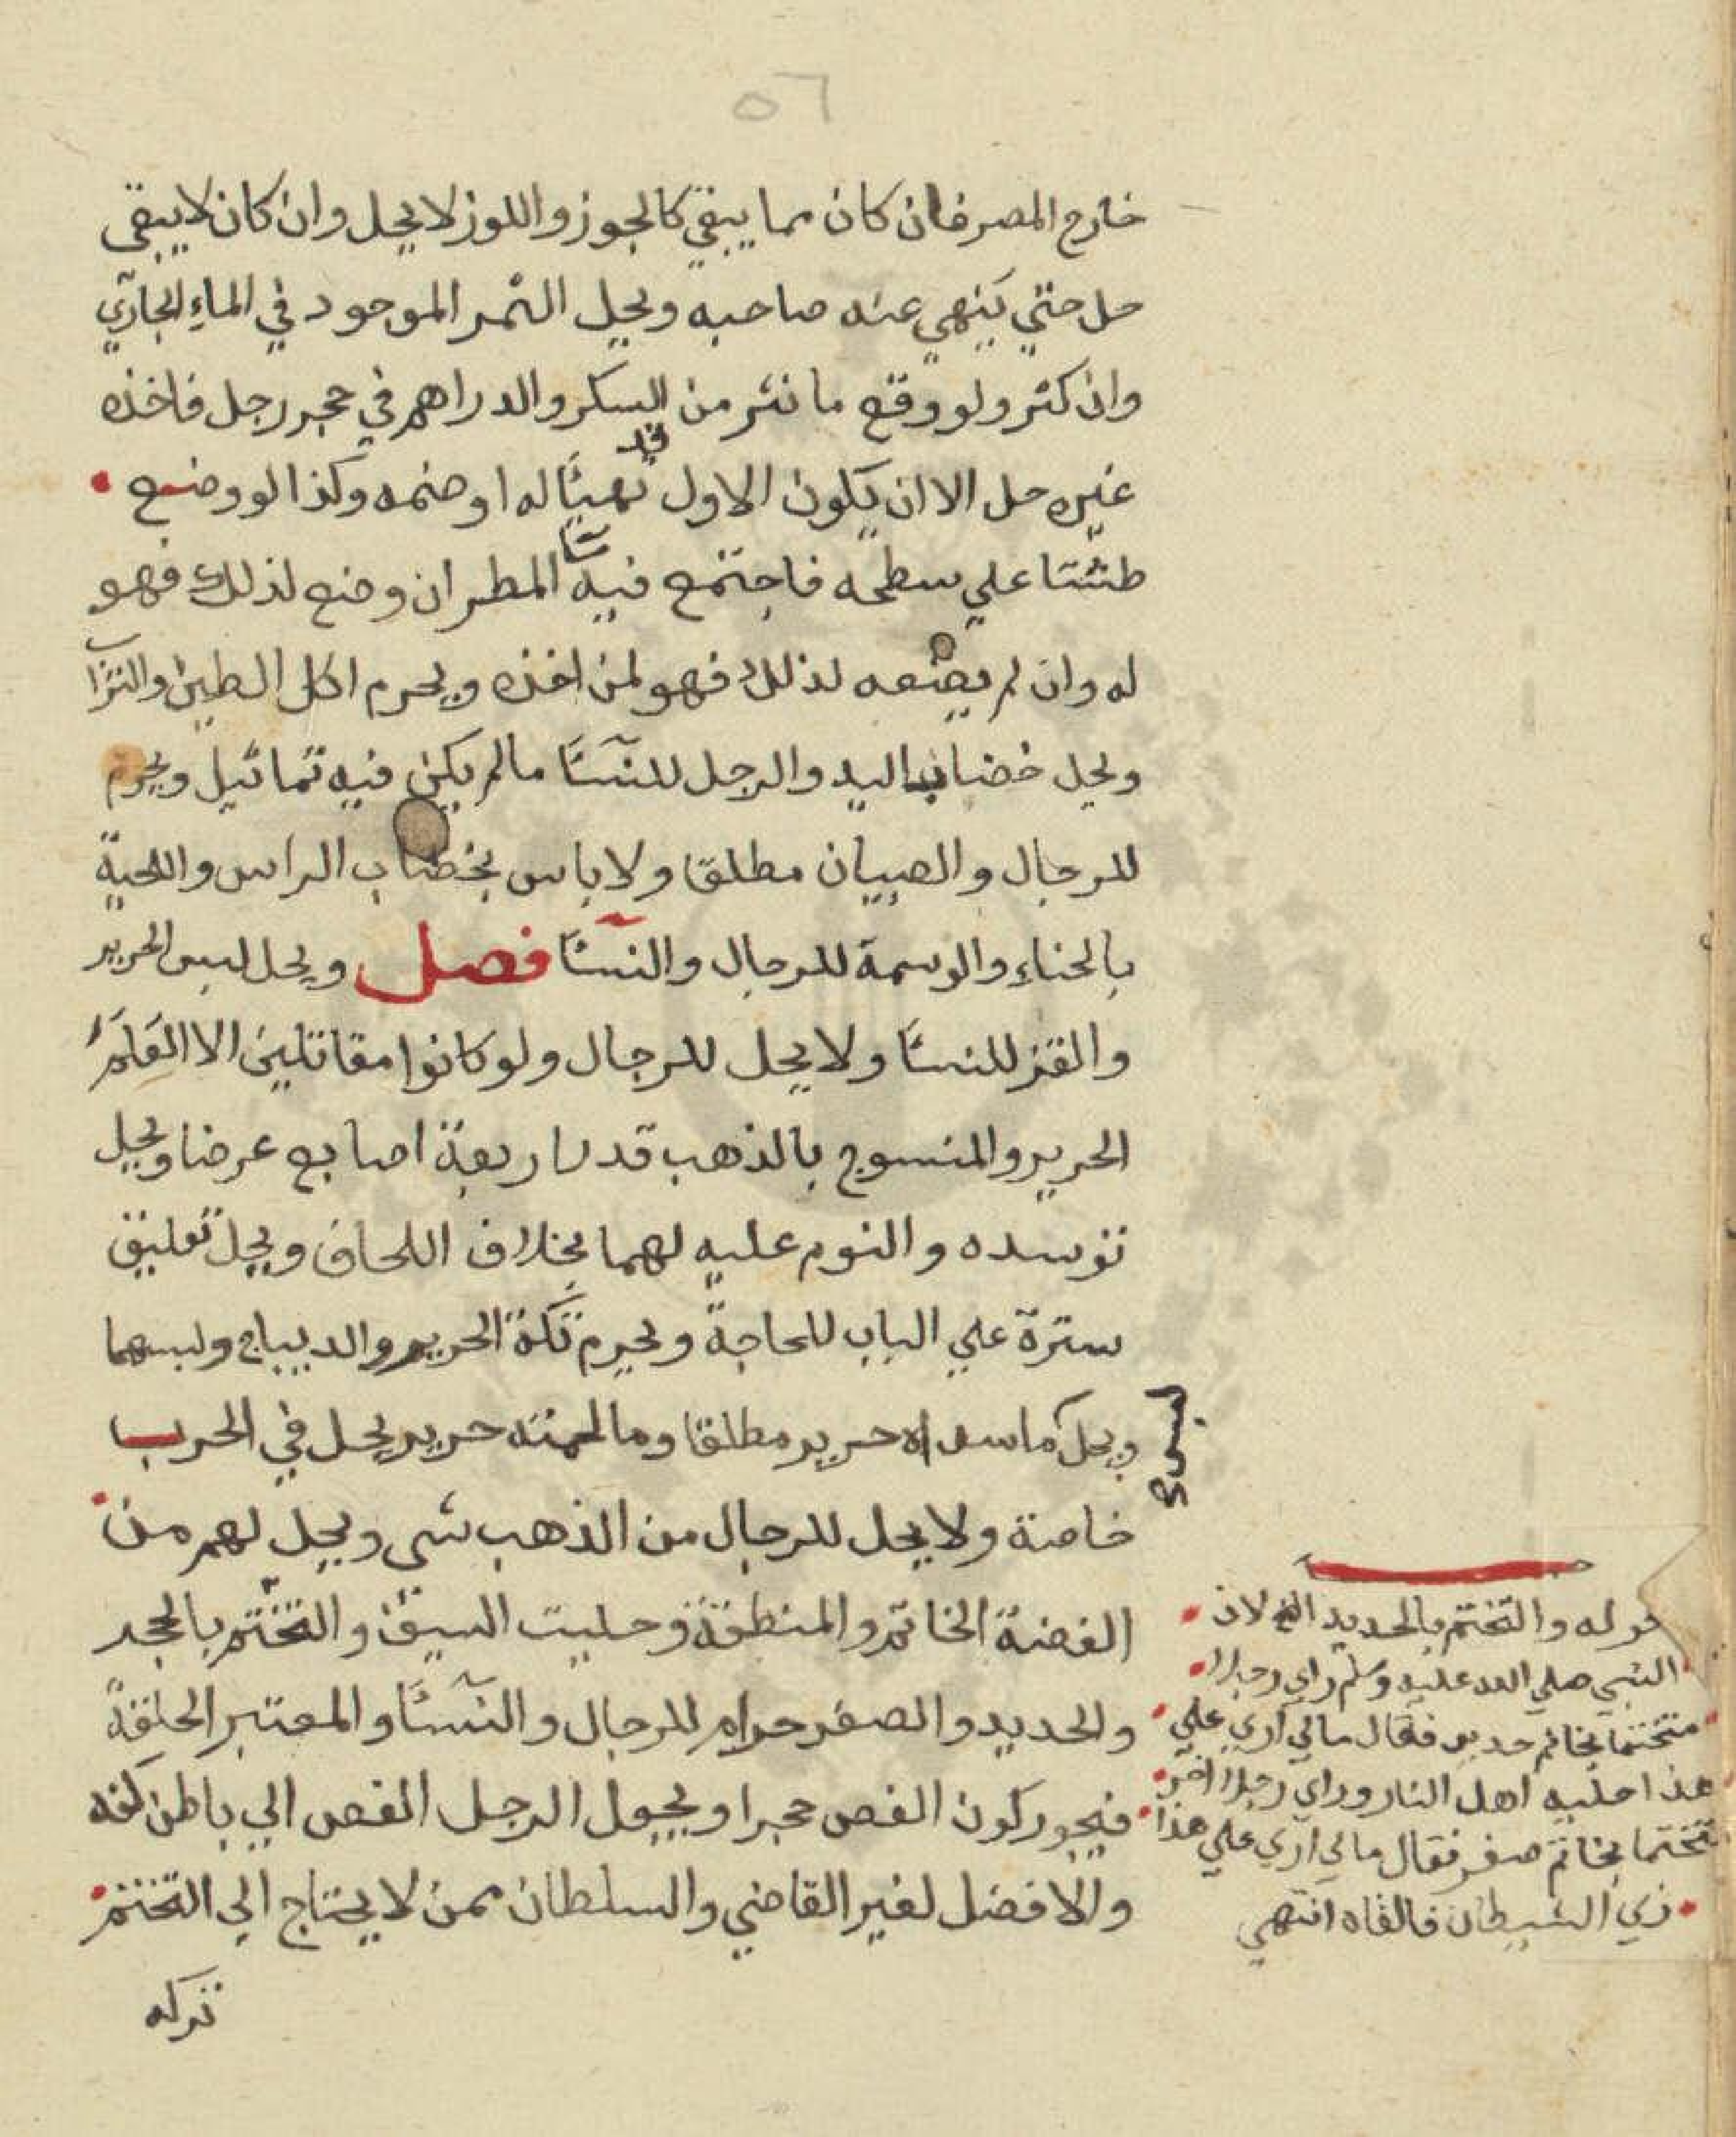 ٥٦
خارج المصر فان كان مما يبقي كالجوز واللوز لا يحل وان كان لا يبقي
حل حتي ينهي عنه صاحبه ويحل الثمر الموجود في الماء الجاري
وان كثر ولو وقع ما نثر من السكر والدراهم في حجر رجل فاخذه
غيره حل الا ان يكون الاول قد تهيئا له او ضمه وكذا لو وضع
طشتا علي سطحه فاجتمع فيه المطر ان وضع لذلك فهو
له وان لم يضعه لذلك فهو لمن اخذه ويحرم اكل الطين والتراب
ويحل خضاب اليد والرجل للنسآ مالم يكن فيه تماثيل ويحرم
للرجال والصبيان مطلقا ولا باس بخضاب الراس واللحية
بالحناء والوسمة للرجال والنسآ فصل ويحل لبس الحرير
والقز للنسآ ولا يحل للرجال ولو كانوا مقاتلين الا العلم
الحرير والمنسوج بالذهب قدر اربعة اصابع عرضا ويحل
توسده والنوم عليه لهما بخلاف اللحاف ويحل تعليق
سترة علي الباب للحاجة ويحرم تكة الحرير والديباج ولبسهما
ويحل ما سداه حرير مطلقا وما لحمته حرير يحل في الحرب
لبس
خاصة ولا يحل للرجال من الذهب شى ويحل لهم من
الفضة الخاتم والمنطقة وحليت السيف والتختم بالحجر
والحديد والصفر حرام للرجال والنسآ والمعتبر الحلقة
فيجوز كون الفص حجرا ويجعل الرجل الفص الي باطن كفه
والافضل لغير القاضي والسلطان ممن لا يحتاج الي التختم
تركه
قوله والتختم بالحديد الخ لان
النبي صلي الله عليه وسلم راي رجلا
متختما بخاتم حديد فقال مالي اري علي
هذا حليه اهل النار وراي رجلا اخر
متختما بخاتم صفر فقال مالي اري علي هذا
زي الشيطان فالقاه انتهي